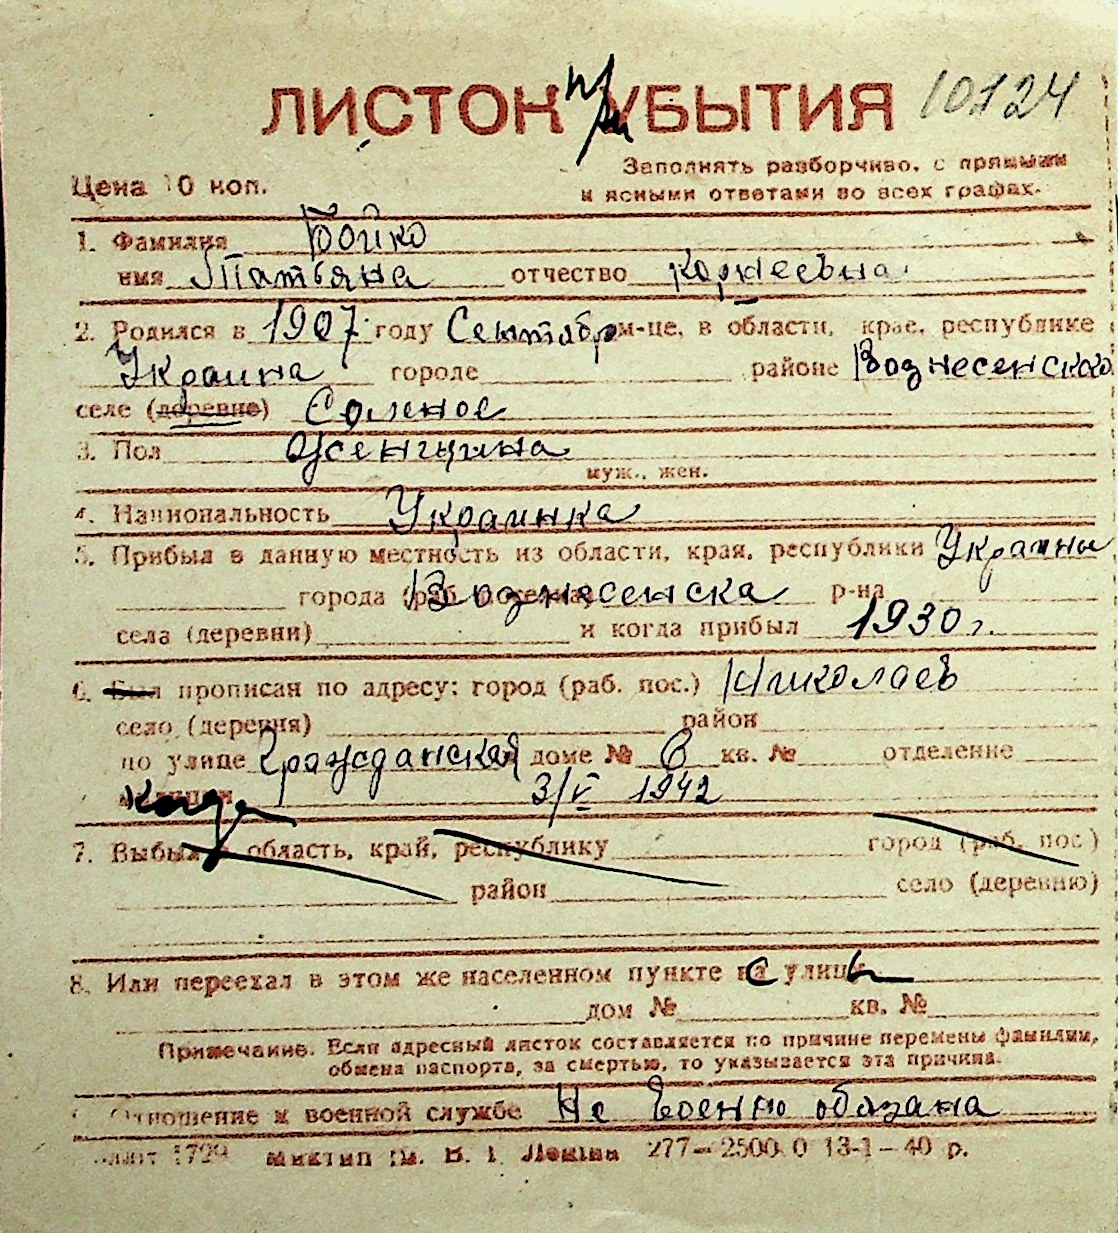 ЛИСТОК при УБЫТИЯ 10124
Цена 10 коп.
Заполнять разборчиво, с прямыми
и ясными ответами во всех графах.
1. Фамилия Бойко
имя Татьяна отчество Корнеевна
2. Родился в 1907 году Сентябр м-це, в области, крае, республике
Украина городе районе Вознесенского
селе (деревне) Солёное
3. Пол женщина
муж., жен.
4. Национальность Украинка
5. Прибыл в данную местность из области, края, республики Украины
города (раб. поселка) Вознесенска р-на
села (деревни) и когда прибыл 1930 г.
6. Был прописан по адресу: город (раб. пос.) Николаев
село (деревня) район
по улице Гражданской доме № 6 кв. № отделение
когда 3/V 1942
7. Выбыл в область, край, республику город (раб. пос.)
район село (деревню)
8. Или переехал в этом же населенном пункте с улицы
дом № кв. №
Примечание. Если адресный листок составляется по причине перемены фамилии,
обмена паспорта, за смертью, то указывается эта причина.
Отношение к военной службе Не военно обязана
1729 им. В. І. Леніна 277—2500 0 13-1—40 р.